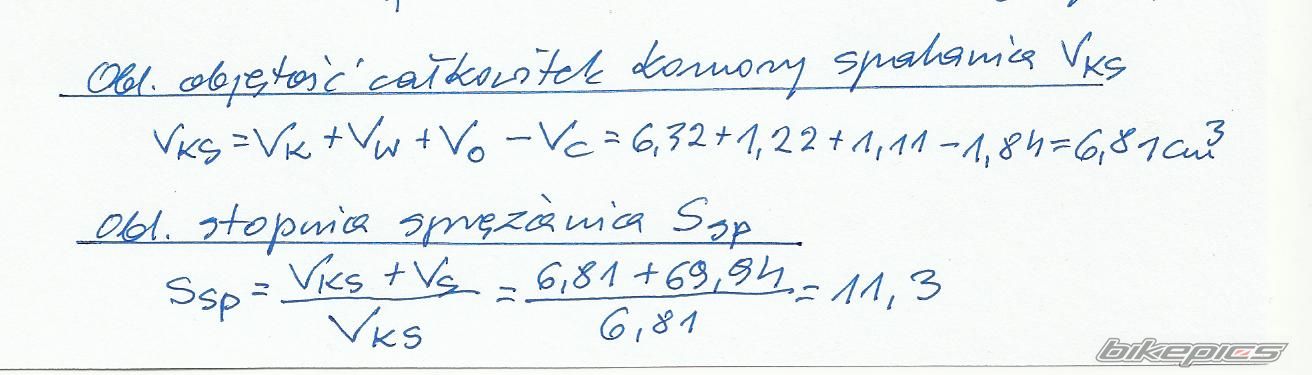 Obl. objętość całkowitek komory spalania VKS
VKS = VK + VW + VO - VC = 6,32 + 1,22 + 1,11 - 1,84 = 6,81 cm³
Obl. stopnia sprężania Ssp
Ssp = (VKS + VS) / VKS = (6,81 + 69,94) / 6,81 = 11,3
bikepics